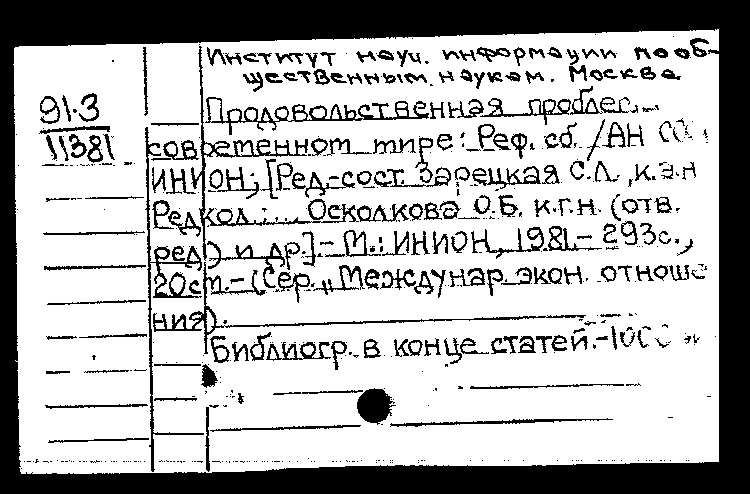 Институт науч. информации по об-
щественным наукам. Москва
91.3
11381
Продовольственная проблем
современном мире: Реф. сб. /АН ССС
ИНИОН; [Ред.-сост. Зарецкая С.Л., к.э.н
Редкол.:... Осколкова О.Б. к.г.н. (отв.
ред.) и др.]-М.: ИНИОН, 1981.-293с.,
20см.-(Сер. „Междунар. экон. отноше
ния).
Библиогр. в конце статей.-1000